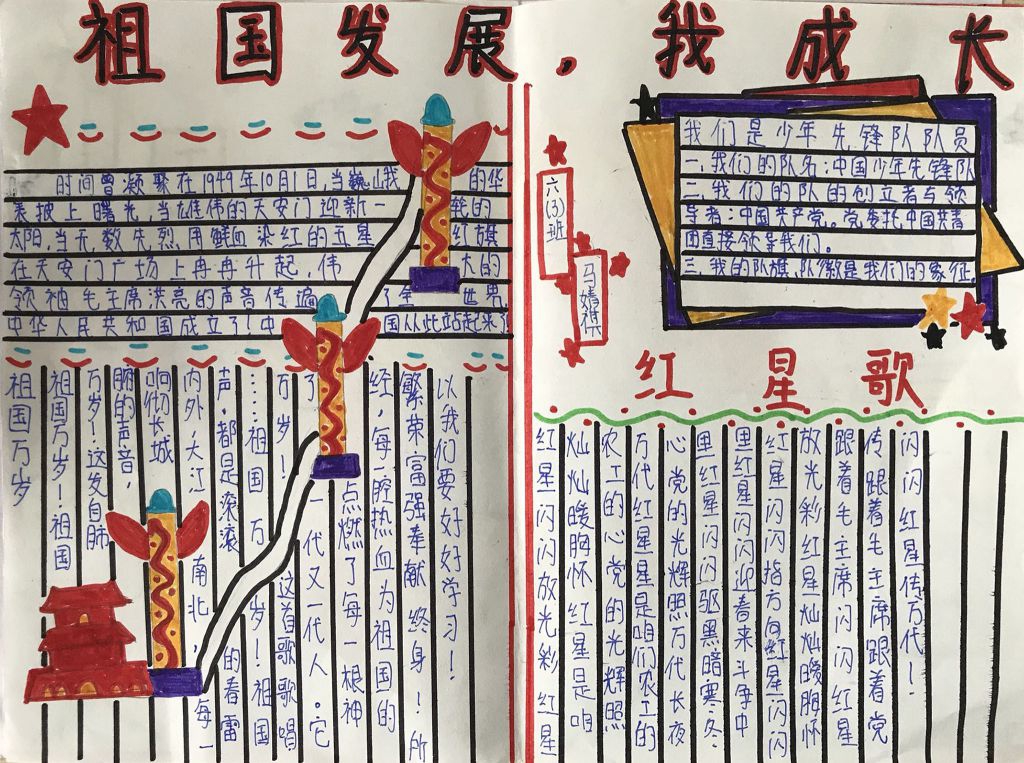 祖国发展,我成长
时间曾凝聚在1949年10月1日,当巍峨的华
表披上曙光,当雄伟的天安门迎新一轮的
太阳,当无数先烈用鲜血染红的五星红旗
在天安门广场上冉冉升起,伟大的
领袖毛主席洪亮的声音传遍了全世界,
中华人民共和国成立了!中国从此站起来了!
祖国万岁
祖国万岁!祖国
万岁!这发自肺
腑的声音,
响彻长城
内外,大江南北,每一
声,都是滚滚的春雷
……祖国万岁!祖国
万岁!这首歌歌唱
了一代又一代人。它
点燃了每一根神
经,每一腔热血为祖国的
繁荣富强奉献终身!所
以我们要好好学习!
六(3)班
马婧祺
我们是少年先锋队队员
一.我们的队名:中国少年先锋队
二.我们的队的创立者与领
导者:中国共产党。党委托中国共青
团直接领导我们。
三.我的队旗、队徽是我们的象征
红星歌
红星闪闪放光彩红星
灿灿暖胸怀红星是咱
农工的心党的光辉照
万代红星是咱们农工的
心党的光辉照万代长夜
里红星闪闪驱黑暗寒冬
里红星闪闪迎春来斗争中
红星闪闪指方向红星闪闪
放光彩红星灿灿暖胸怀
跟着毛主席闪闪红星
传跟着毛主席跟着党
闪闪红星传万代!